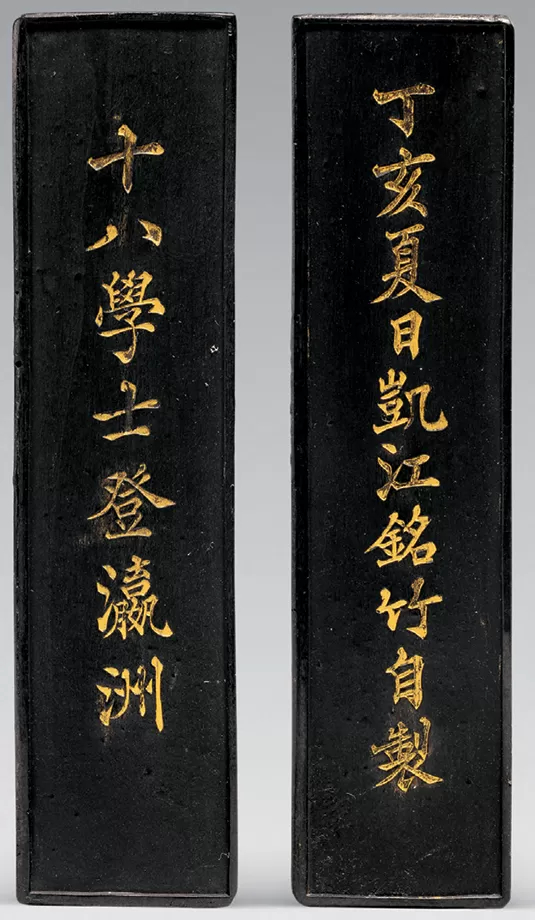 十八學士登瀛洲
丁亥夏日凱江銘竹自製